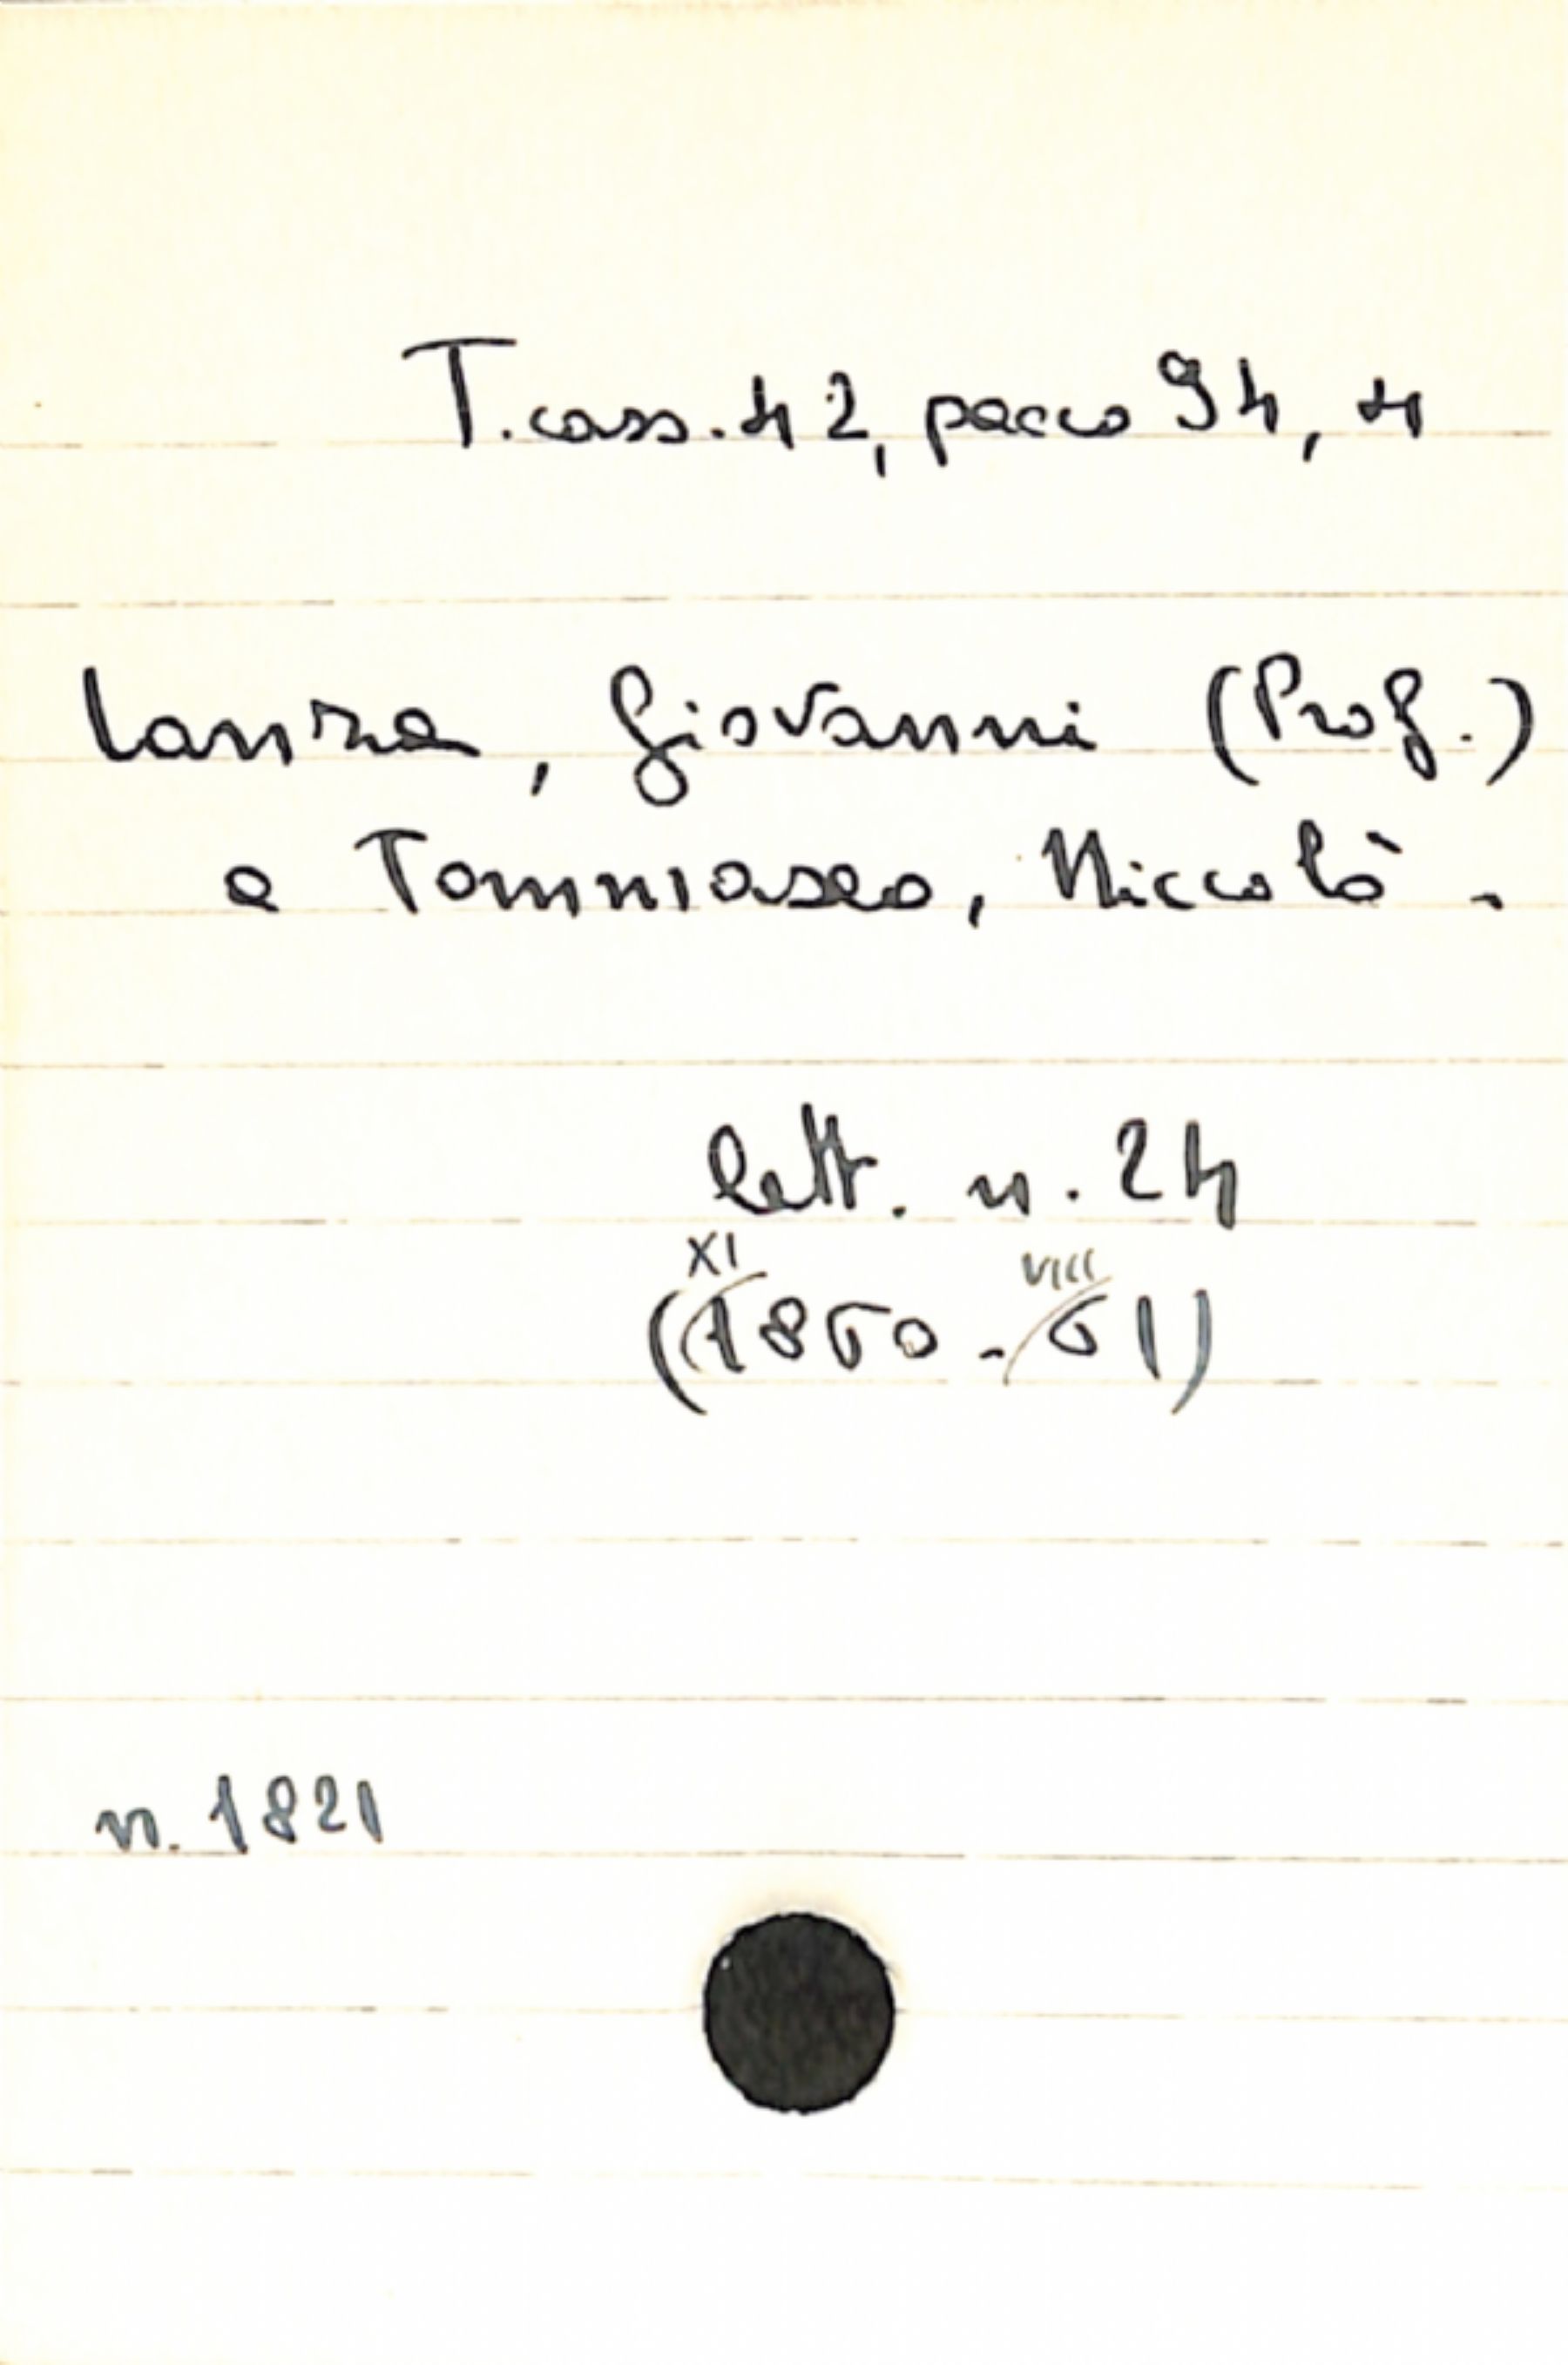 T. cass. 42, pacco 94, 4
Lanza, Giovanni (Prof.)
a Tommaseo, Niccolò.
lett. n. 24
XI VIII
(1860 - 61)
n. 1821